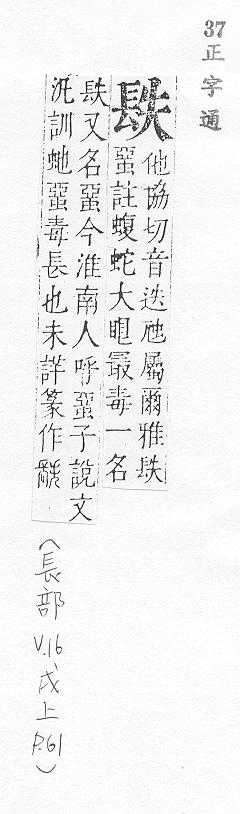 37正字通
镻 他協切音迭虺屬爾雅镻
蝁註蝮蛇大眼最毒一名
镻又名蝁今淮南人呼蝁子說文
虺訓虵蝁毒長也未詳篆作
(長部
V.16、戌上
P.61)